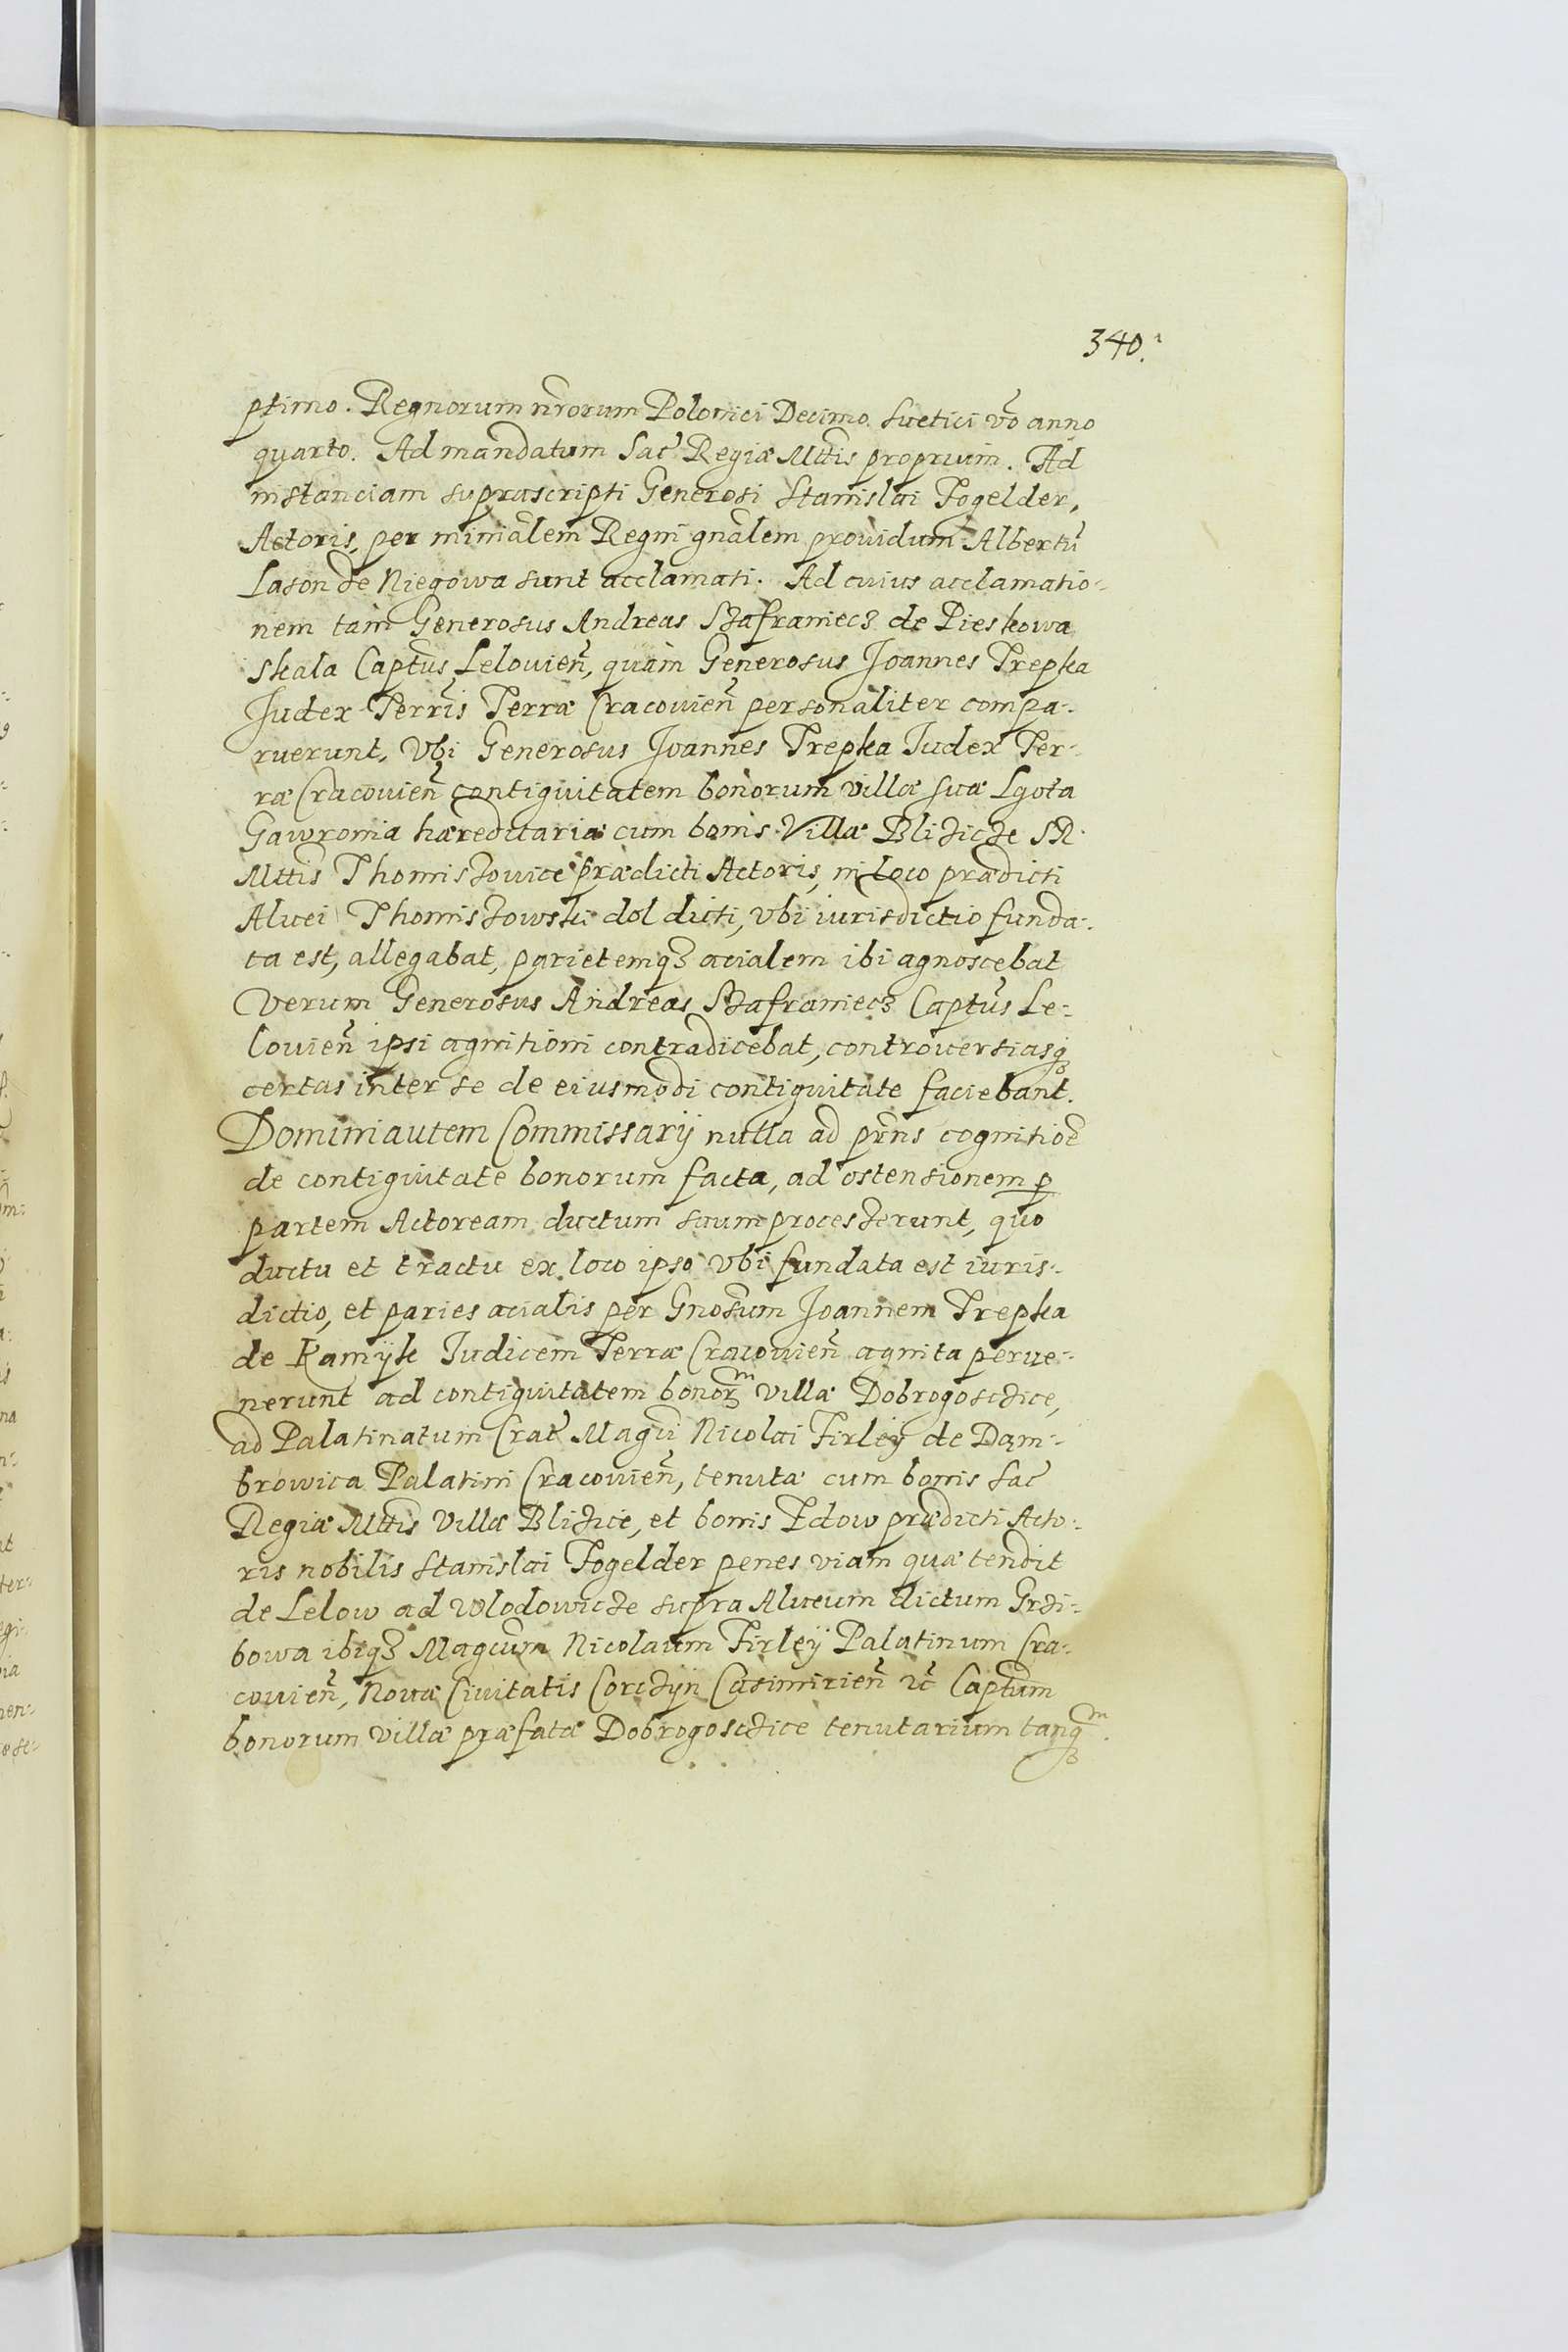 340.
ptimo. Regnorum nrorum Polonici Decimo. Suetici vo anno
quarto. Ad mandatum Sac Regiæ Mttis proprium. Ad
instanciam suprascripti Generosi Stanislai Fogelder,
Actoris, per minialem Regni gnalem prouidum Albertu
Lason de Niegowa sunt acclamati. Ad cuius acclamatio-
nem tam Generosus Andreas Szafraniecz de Pieskowa
Skala Captus Lelouien, quam Generosus Joannes Trepka
Judex Terris Terræ Cracouien personaliter compa-
ruerunt, Vbi Generosus Joannes Trepka Iudex Ter-
ræ Cracouien contiguitatem bonorum villæ suæ Lgota
Gawronia hæreditariæ cum bonis Villæ Blizicze SR
Mttis Thomiszouice prædicti Actoris, in loco prædicti
Aluei Thomiszowski dol dicti, vbi iurisdictio funda-
ta est, allegabat, parietemqz acialem ibi agnoscebat
Verum Generosus Andreas Szafraniecz Captus Le-
louien ipsi agnitioni contradicebat, controuersiasqz
certas inter se de eiusmodi contiguitate faciebant.
Domini autem Commissarij nulla ad prns cognitioe
de contiguitate bonorum facta, ad ostensionem p
partem Actoream ductum suum processerunt, quo
ductu et tractu ex loco ipso vbi fundata est iuris-
dictio, et paries acialis per Gnosum Joannem Trepka
de Kamÿk Iudicem Terræ Cracouien agnita perue-
nerunt ad contiguitatem bonorz m villæ Dobrogoszcice,
ad Palatinatum Crac Magci Nicolai Firleÿ de Dąm-
browica Palatini Cracouien, tenutæ cum bonis Sac
Regiæ Mttis Villæ Blizice, et bonis Zdow prædicti Acto-
ris nobilis Stanislai Fogelder penes viam quæ tendit
de Lelow ad Wlodowicze supra Alueum dictum Grzi-
bowa ibiqz Magcum Nicolaum Firleÿ Palatinum Cra-
couien, Nouæ Ciuitatis Corczÿn Casimirien zc Captum
bonorum villæ præfatæ Dobrogosczice tenutarium tanq m